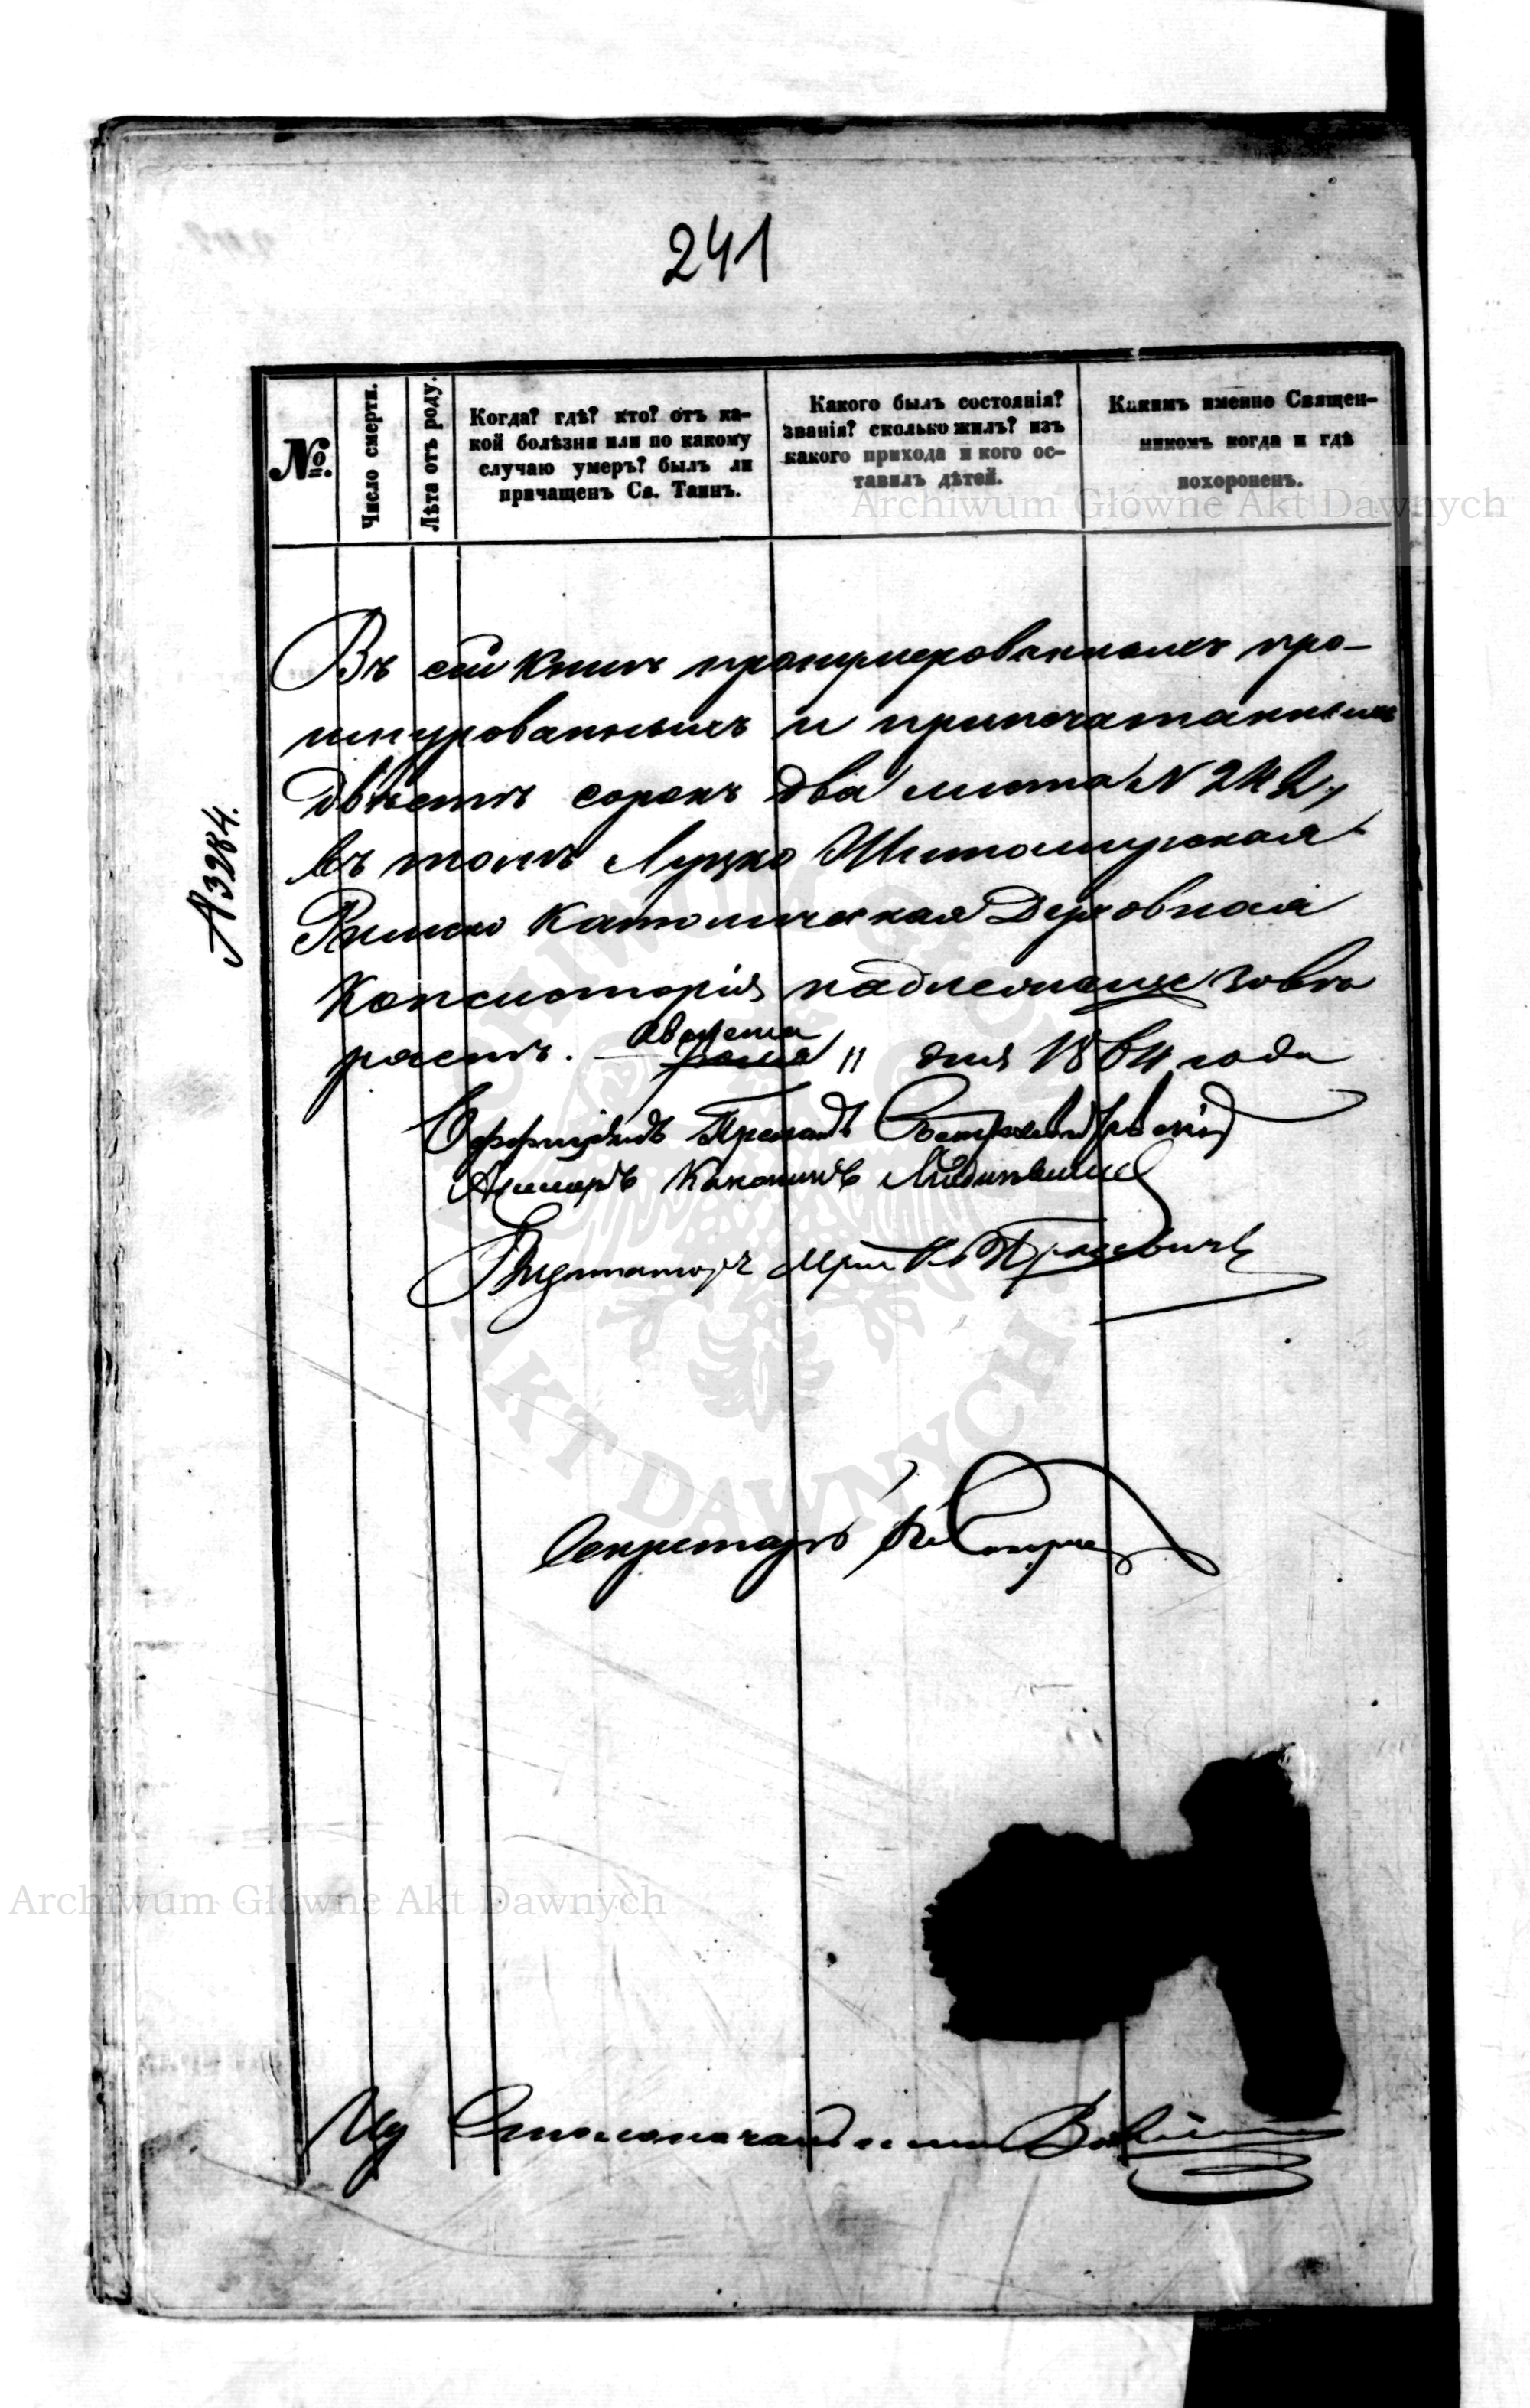 241
№.
Число смерти.
Лѣта отъ роду.
Когда? гдѣ? кто? отъ ка-
кой болѣзни или по какому
случаю умеръ? былъ ли
причащенъ Св. Таинъ.
Какого былъ состоянія?
званія? сколько жилъ? изъ
какого прихода и кого ос-
тавилъ дѣтей.
Какимъ именно Священ-
никомъ когда и гдѣ
похороненъ.
Archiwum Główne Akt Dawnych
Въ сей книгѣ пронумерованныхъ про-
шнурованныхъ и припечатанныхъ
двѣсти сорокъ два листа N 242,
въ томъ Луцко Житомирская
Римско Католическая Духовная
Консисторія надлежаще завѣ
ряетъ. Августа 11 дня 1864 года
N 3284.
Оффиціалъ Прелатъ
Ассесоръ Каноникъ
Секретарь
Archiwum Główne Akt Dawnych
Столоначальника
ARCHIWUM GŁÓWNE AKT DAWNYCH